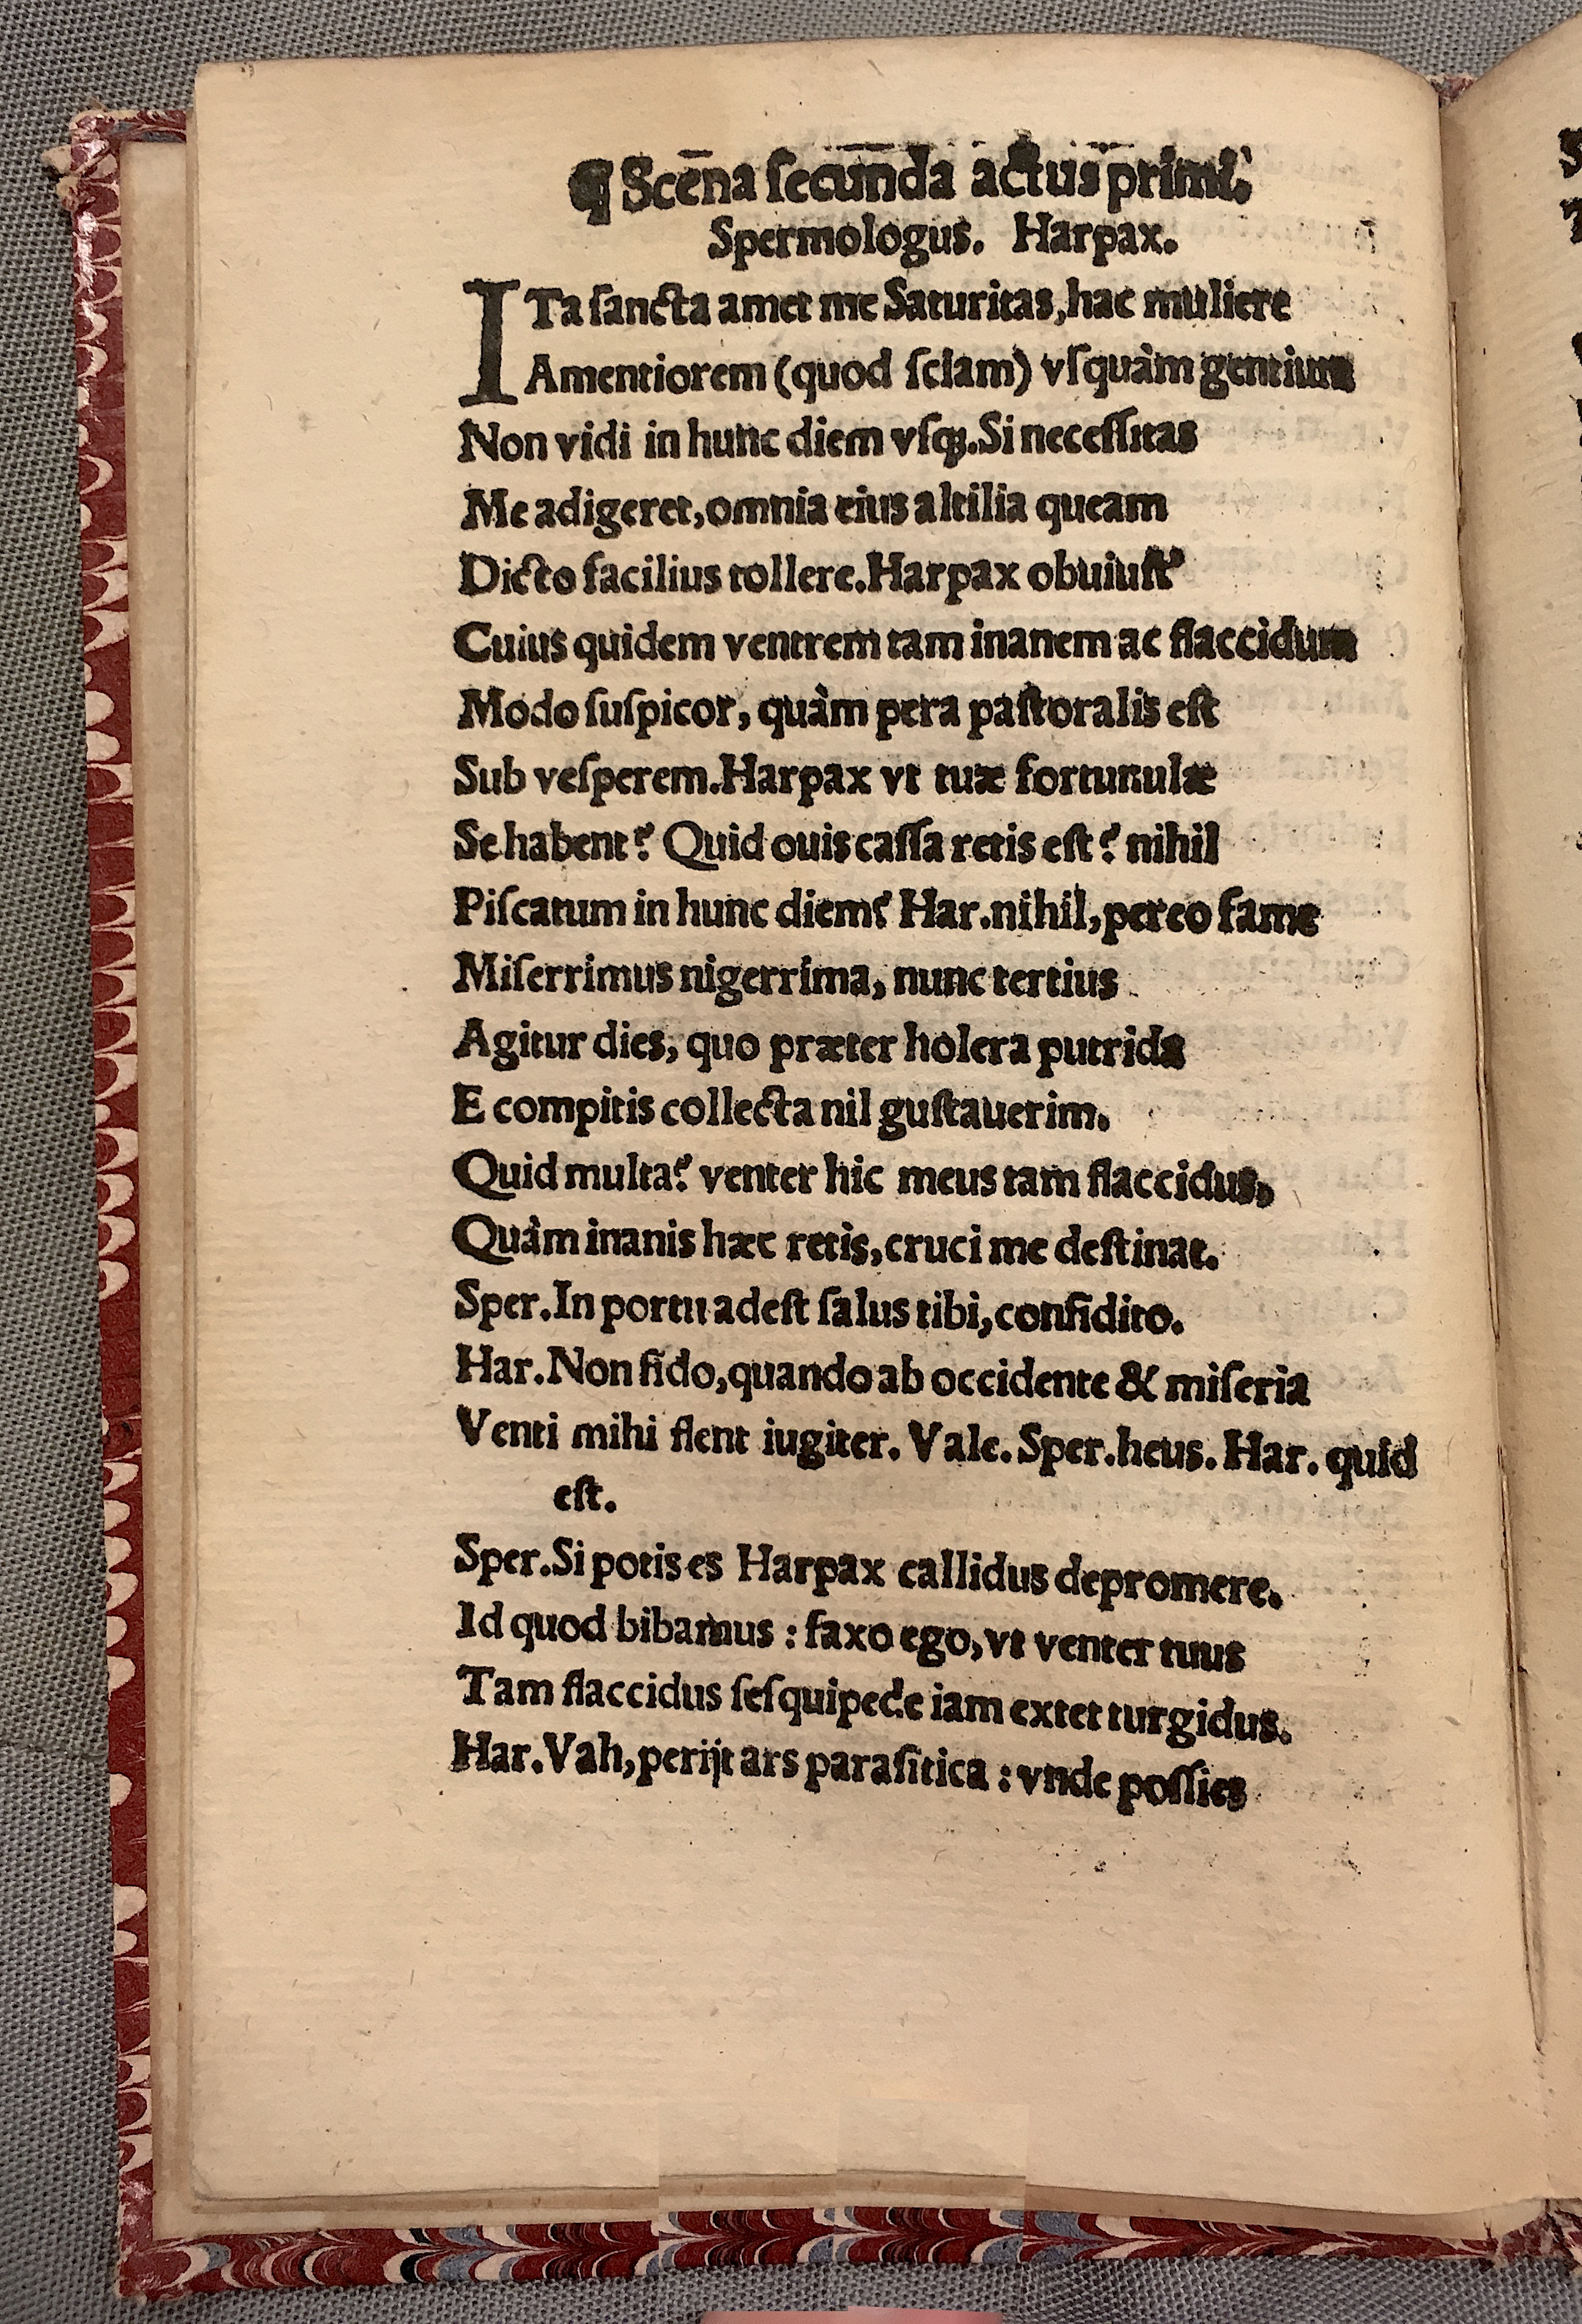 ¶ Scena ſecunda actus primi.
Spermologus. Harpax.
ITa ſancta amet me Saturitas, hac muliere
Amentiorem (quod ſciam) vſquàm gentium
Non vidi in hunc diem vſqꝫ. Si neceſſitas
Me adigeret, omnia eius altilia queam
Dicto facilius tollere. Harpax obuiuſt'
Cuius quidem ventrem tam inanem ac flaccidum
Modo ſuſpicor, quàm pera paſtoralis eſt
Sub veſperem. Harpax vt tuæ fortunulæ
Se habent? Quid ouis caſſa retis eſt? nihil
Piſcatum in hunc diem? Har. nihil, pereo fame
Miſerrimus nigerrima, nunc tertius
Agitur dies, quo præter holera putrida
E compitis collecta nil guſtauerim.
Quid multa? venter hic meus tam flaccidus,
Quàm inanis hæc retis, cruci me deſtinat.
Sper. In portu adeſt ſalus tibi, confidito.
Har. Non fido, quando ab occidente & miſeria
Venti mihi flent iugiter. Vale. Sper. heus. Har. quid
eſt.
Sper. Si potis es Harpax callidus depromere.
Id quod bibamus : faxo ego, vt venter tuus
Tam flaccidus ſeſquipede iam extet turgidus.
Har. Vah, perijt ars paraſitica : vnde poſſies